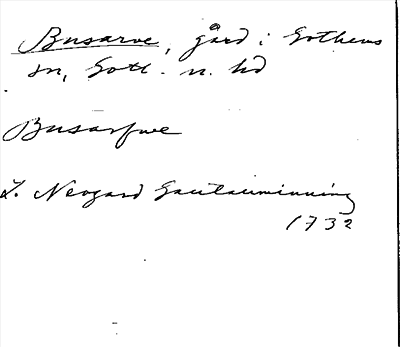 Busarve, gård i Gothems
sn, Gotl. n. hd
Busarfwe
L. Neogard Gautauminning
1732